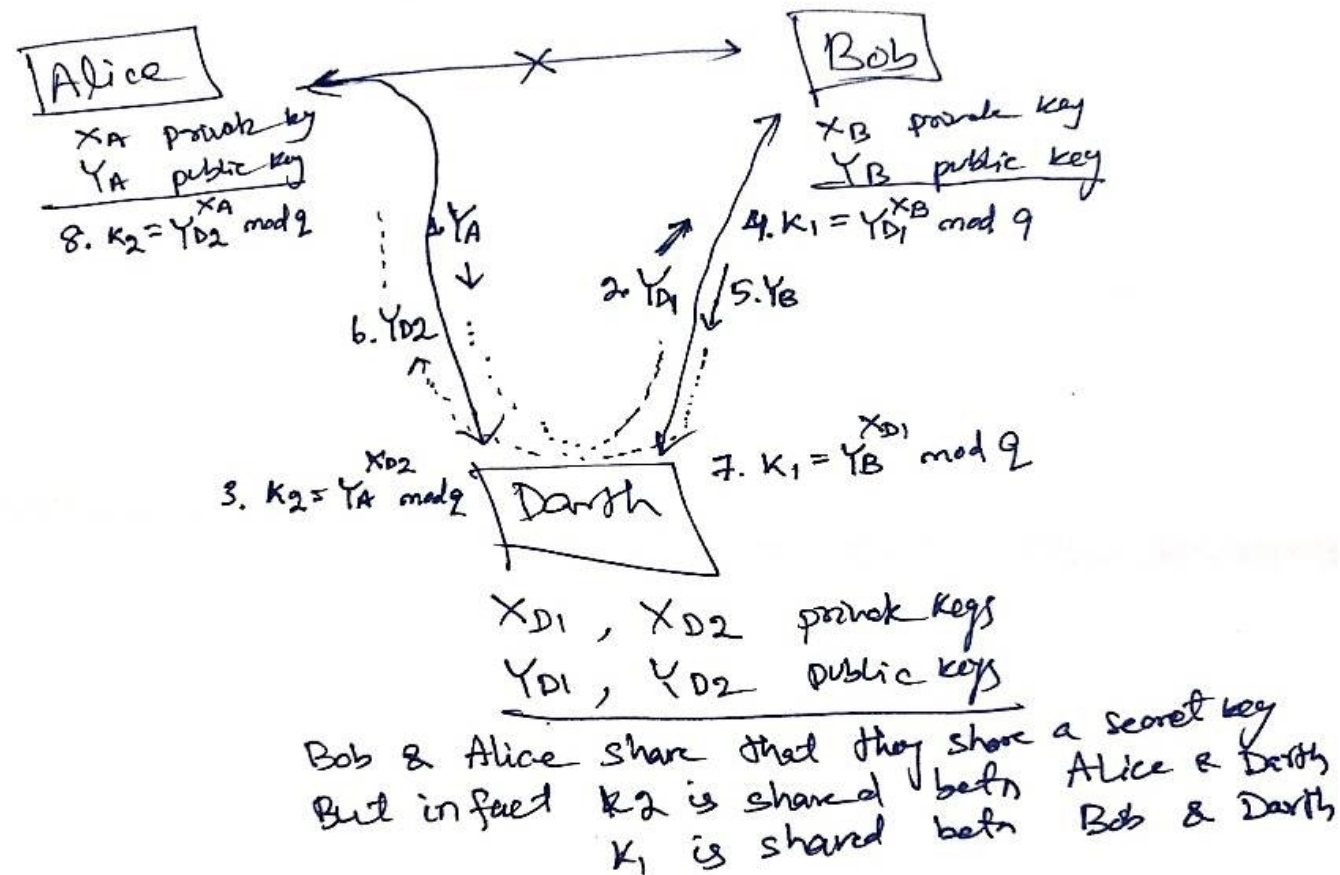 Alice
Bob
X_A private key
Y_A public key
8. K_2 = Y_D2^X_A mod q
X_B private key
Y_B public key
4. K_1 = Y_D1^X_B mod q
1. Y_A
2. Y_D1
5. Y_B
6. Y_D2
3. K_2 = Y_A^X_D2 mod q
Darth
7. K_1 = Y_B^X_D1 mod q
X_D1 , X_D2 private keys
Y_D1 , Y_D2 public keys
Bob & Alice share that they share a secret key
But in fact K2 is shared betn Alice & Darth
K_1 is shared betn Bob & Darth